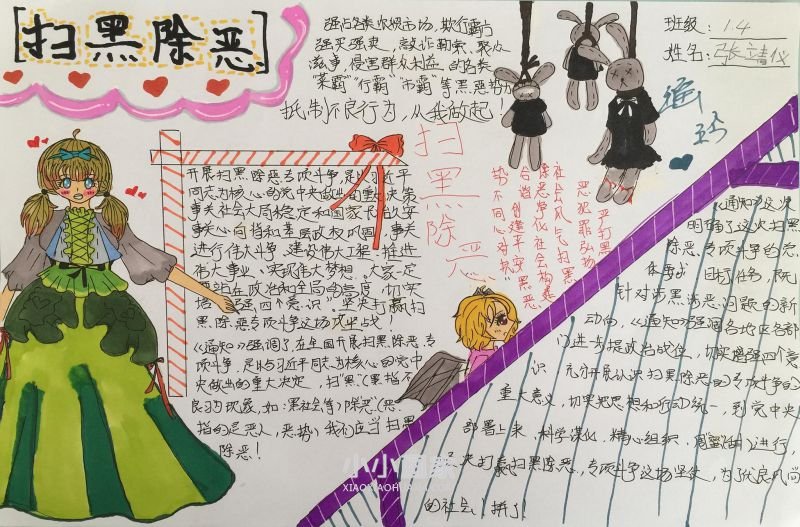 [扫黑除恶]
强占各类农贸市场、欺行霸市
强买强卖、敲诈勒索、聚众
滋事、侵害群众利益的各类
"菜霸""行霸""市霸"等黑恶势力
抵制不良行为，从我做起！
班级：1.4
姓名：张靖仪
开展扫黑除恶专项斗争，是以习近平
同志为核心的党中央做出的重大决策
事关社会大局稳定和国家长治久安
事关心向背和基层政权巩固，事关
进行伟大斗争、建设伟大工程、推进
伟大事业、实现伟大梦想。大家一定
要站在政治和全局的高度，切实
增强"四个意识"。坚决打赢扫
黑除恶专项斗争这场攻坚战！
《通知》强调了在全国开展扫黑除恶专
项斗争，是以习近平同志为核心的党中
央做出的重大决定，扫"黑"（黑指不
良习为现象，如：黑社会等）除恶（恶
指的是恶人，恶势）我们应当扫黑
除恶！
扫黑除恶
严打黑
恶犯罪弘扬
社会风气扫黑
除恶净化社会构建
和谐 创建平安 黑恶
势不同心对抗
通
《通知》这次
明确了这次扫黑
除恶专项斗争的总
体要求 目打任务，既
针对涉黑涉恶问题的新
动向，《通知》强调各地区各部
门进步提政治战位，切实增强四个意
识 充分开展认识扫黑除恶的专项斗争的
重大意义，切实把思想和行动统一，到党中央
部署上来，科学谋化，精心组织，周密进行，
坚决打赢扫黑除恶，专项斗争这场坚史，为了优良风尚
的社会，拼了！
小小画家